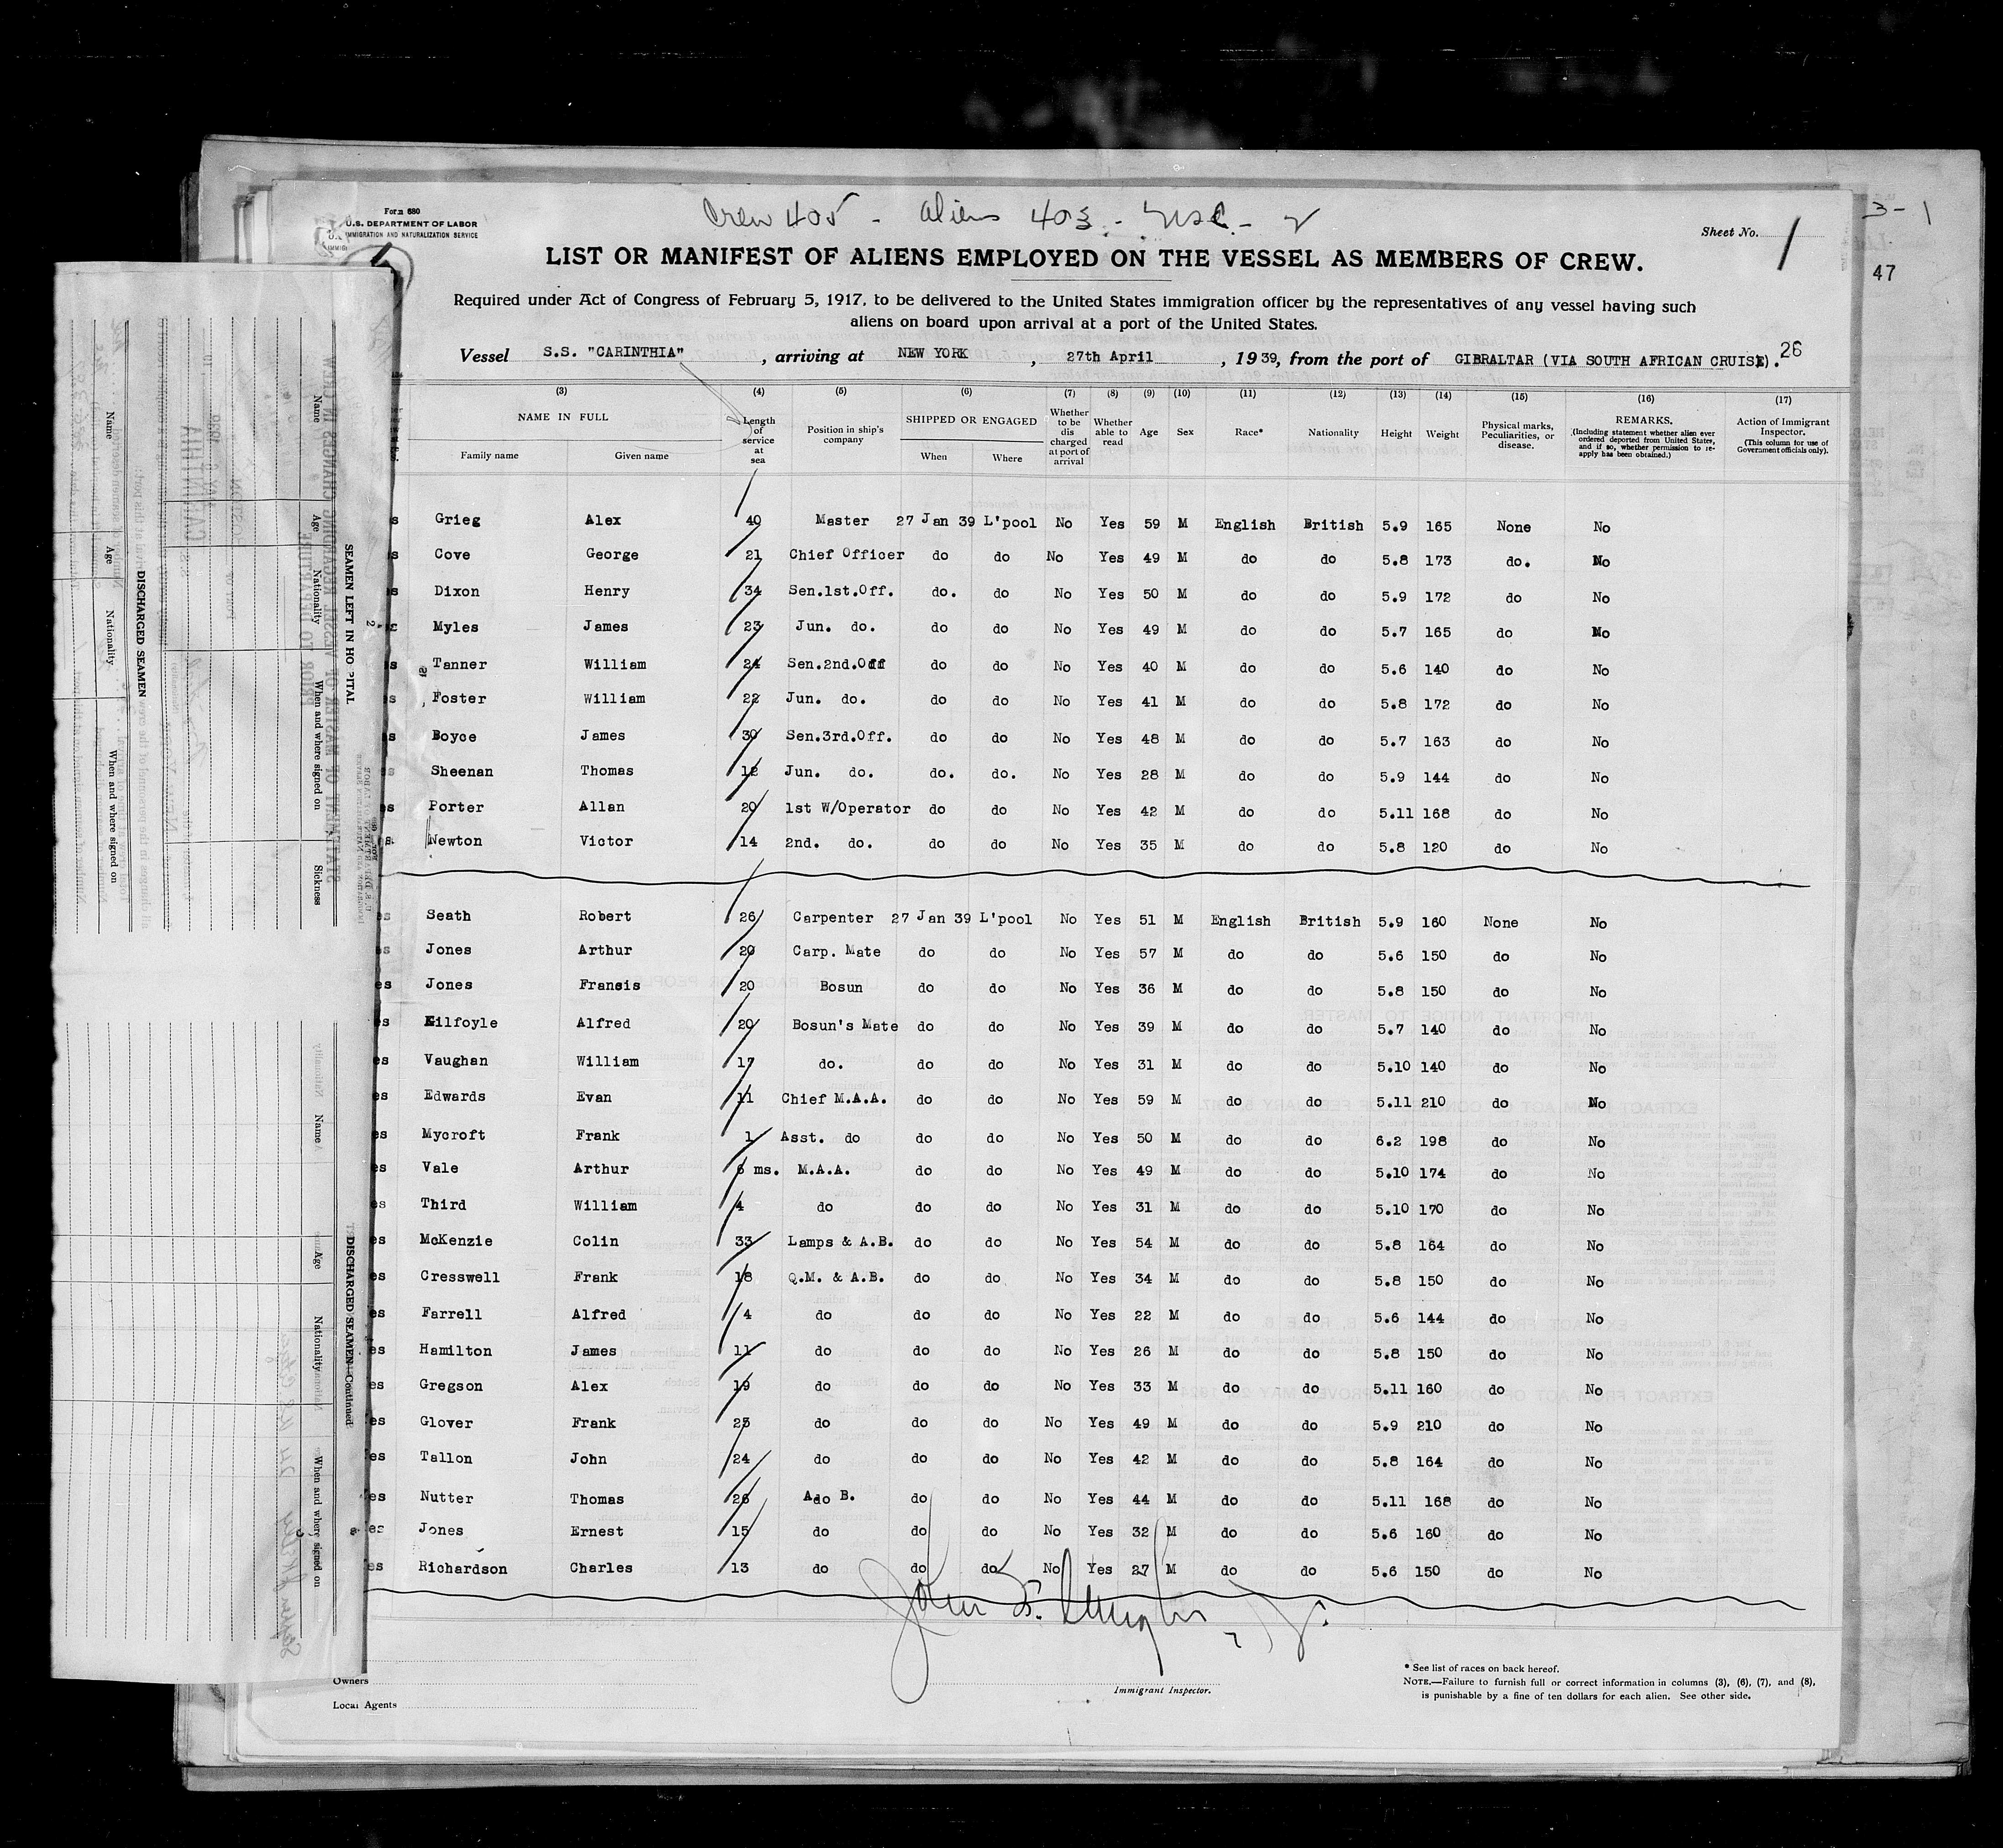 Crew 405 - Aliens 403 - USC - 2
Form 680
U.S. DEPARTMENT OF LABOR
IMMIGRATION AND NATURALIZATION SERVICE
Sheet No. 1
3-1
47
LIST OR MANIFEST OF ALIENS EMPLOYED ON THE VESSEL AS MEMBERS OF CREW.
Required under Act of Congress of February 5, 1917, to be delivered to the United States immigration officer by the representatives of any vessel having such
aliens on board upon arrival at a port of the United States.
Vessel S.S. "CARINTHIA", arriving at NEW YORK, 27th April, 1939, from the port of GIBRALTAR (VIA SOUTH AFRICAN CRUISE). 26
(3) (4) (5) (6) (7) (8) (9) (10) (11) (12) (13) (14) (15) (16) (17)
NAME IN FULL Family name Given name Length of service at sea Position in ship's company SHIPPED OR ENGAGED When Where Whether to be dis charged at port of arrival Whether able to read Age Sex Race* Nationality Height Weight Physical marks, Peculiarities, or disease. REMARKS. (Including statement whether alien ever ordered deported from United States, and if so, whether permission to re-apply has been obtained.) Action of Immigrant Inspector. (This column for use of Government officials only).
Grieg Alex 40 Master 27 Jan 39 L'pool No Yes 59 M English British 5.9 165 None No
Cove George 21 Chief Officer do do No Yes 49 M do do 5.8 173 do. No
Dixon Henry 34 Sen.1st.Off. do. do No Yes 50 M do do 5.9 172 do No
Myles James 23 Jun. do. do do No Yes 49 M do do 5.7 165 do No
Tanner William 24 Sen.2nd.Off do do No Yes 40 M do do 5.6 140 do No
Foster William 22 Jun. do. do do No Yes 41 M do do 5.8 172 do No
Boyce James 30 Sen.3rd.Off. do do No Yes 48 M do do 5.7 163 do No
Sheenan Thomas 12 Jun. do. do. do. No Yes 28 M do do 5.9 144 do No
Porter Allan 20 1st W/Operator do do No Yes 42 M do do 5.11 168 do No
Newton Victor 14 2nd. do. do do No Yes 35 M do do 5.8 120 do No
Seath Robert 26 Carpenter 27 Jan 39 L'pool No Yes 51 M English British 5.9 160 None No
Jones Arthur 20 Carp. Mate do do No Yes 57 M do do 5.6 150 do No
Jones Francis 20 Bosun do do No Yes 36 M do do 5.8 150 do No
Kilfoyle Alfred 20 Bosun's Mate do do No Yes 39 M do do 5.7 140 do No
Vaughan William 17 do. do do No Yes 31 M do do 5.10 140 do No
Edwards Evan 11 Chief M.A.A. do do No Yes 59 M do do 5.11 210 do No
Mycroft Frank 1 Asst. do do do No Yes 50 M do do 6.2 198 do No
Vale Arthur 6 ms. M.A.A. do do No Yes 49 M do do 5.10 174 do No
Third William 4 do do do No Yes 31 M do do 5.10 170 do No
McKenzie Colin 33 Lamps & A.B. do do No Yes 54 M do do 5.8 164 do No
Cresswell Frank 18 Q.M. & A.B. do do No Yes 34 M do do 5.8 150 do No
Farrell Alfred 4 do do do No Yes 22 M do do 5.6 144 do No
Hamilton James 11 do do do No Yes 26 M do do 5.8 150 do No
Gregson Alex 19 do do do No Yes 33 M do do 5.11 160 do No
Glover Frank 25 do do do No Yes 49 M do do 5.9 210 do No
Tallon John 24 do do do No Yes 42 M do do 5.8 164 do No
Nutter Thomas 26 A. B. do do No Yes 44 M do do 5.11 168 do No
Jones Ernest 15 do do do No Yes 32 M do do 5.6 160 do No
Richardson Charles 13 do do do No Yes 27 M do do 5.6 150 do No
Owners
Local Agents
Immigrant Inspector.
* See list of races on back hereof.
NOTE.—Failure to furnish full or correct information in columns (3), (6), (7), and (8),
is punishable by a fine of ten dollars for each alien. See other side.
SEAMEN LEFT IN HO PITAL
Name Age Nationality When and where signed on Sickness
DISCHARGED SEAMEN
Name Age Nationality When and where signed on
DISCHARGED SEAMEN—Continued
Name Age Nationality When and where signed on